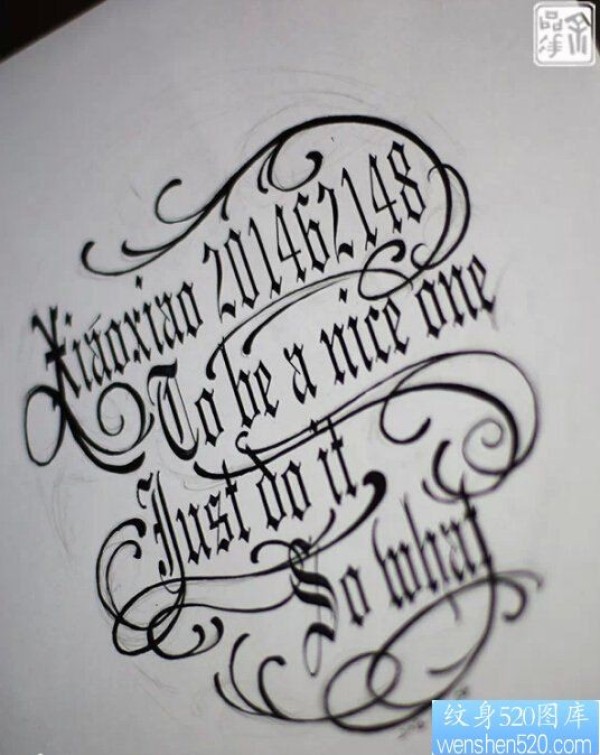 Xiaoxiao 201462148
To be a nice one
Just do it
So what
纹身520图库
wenshen520.com